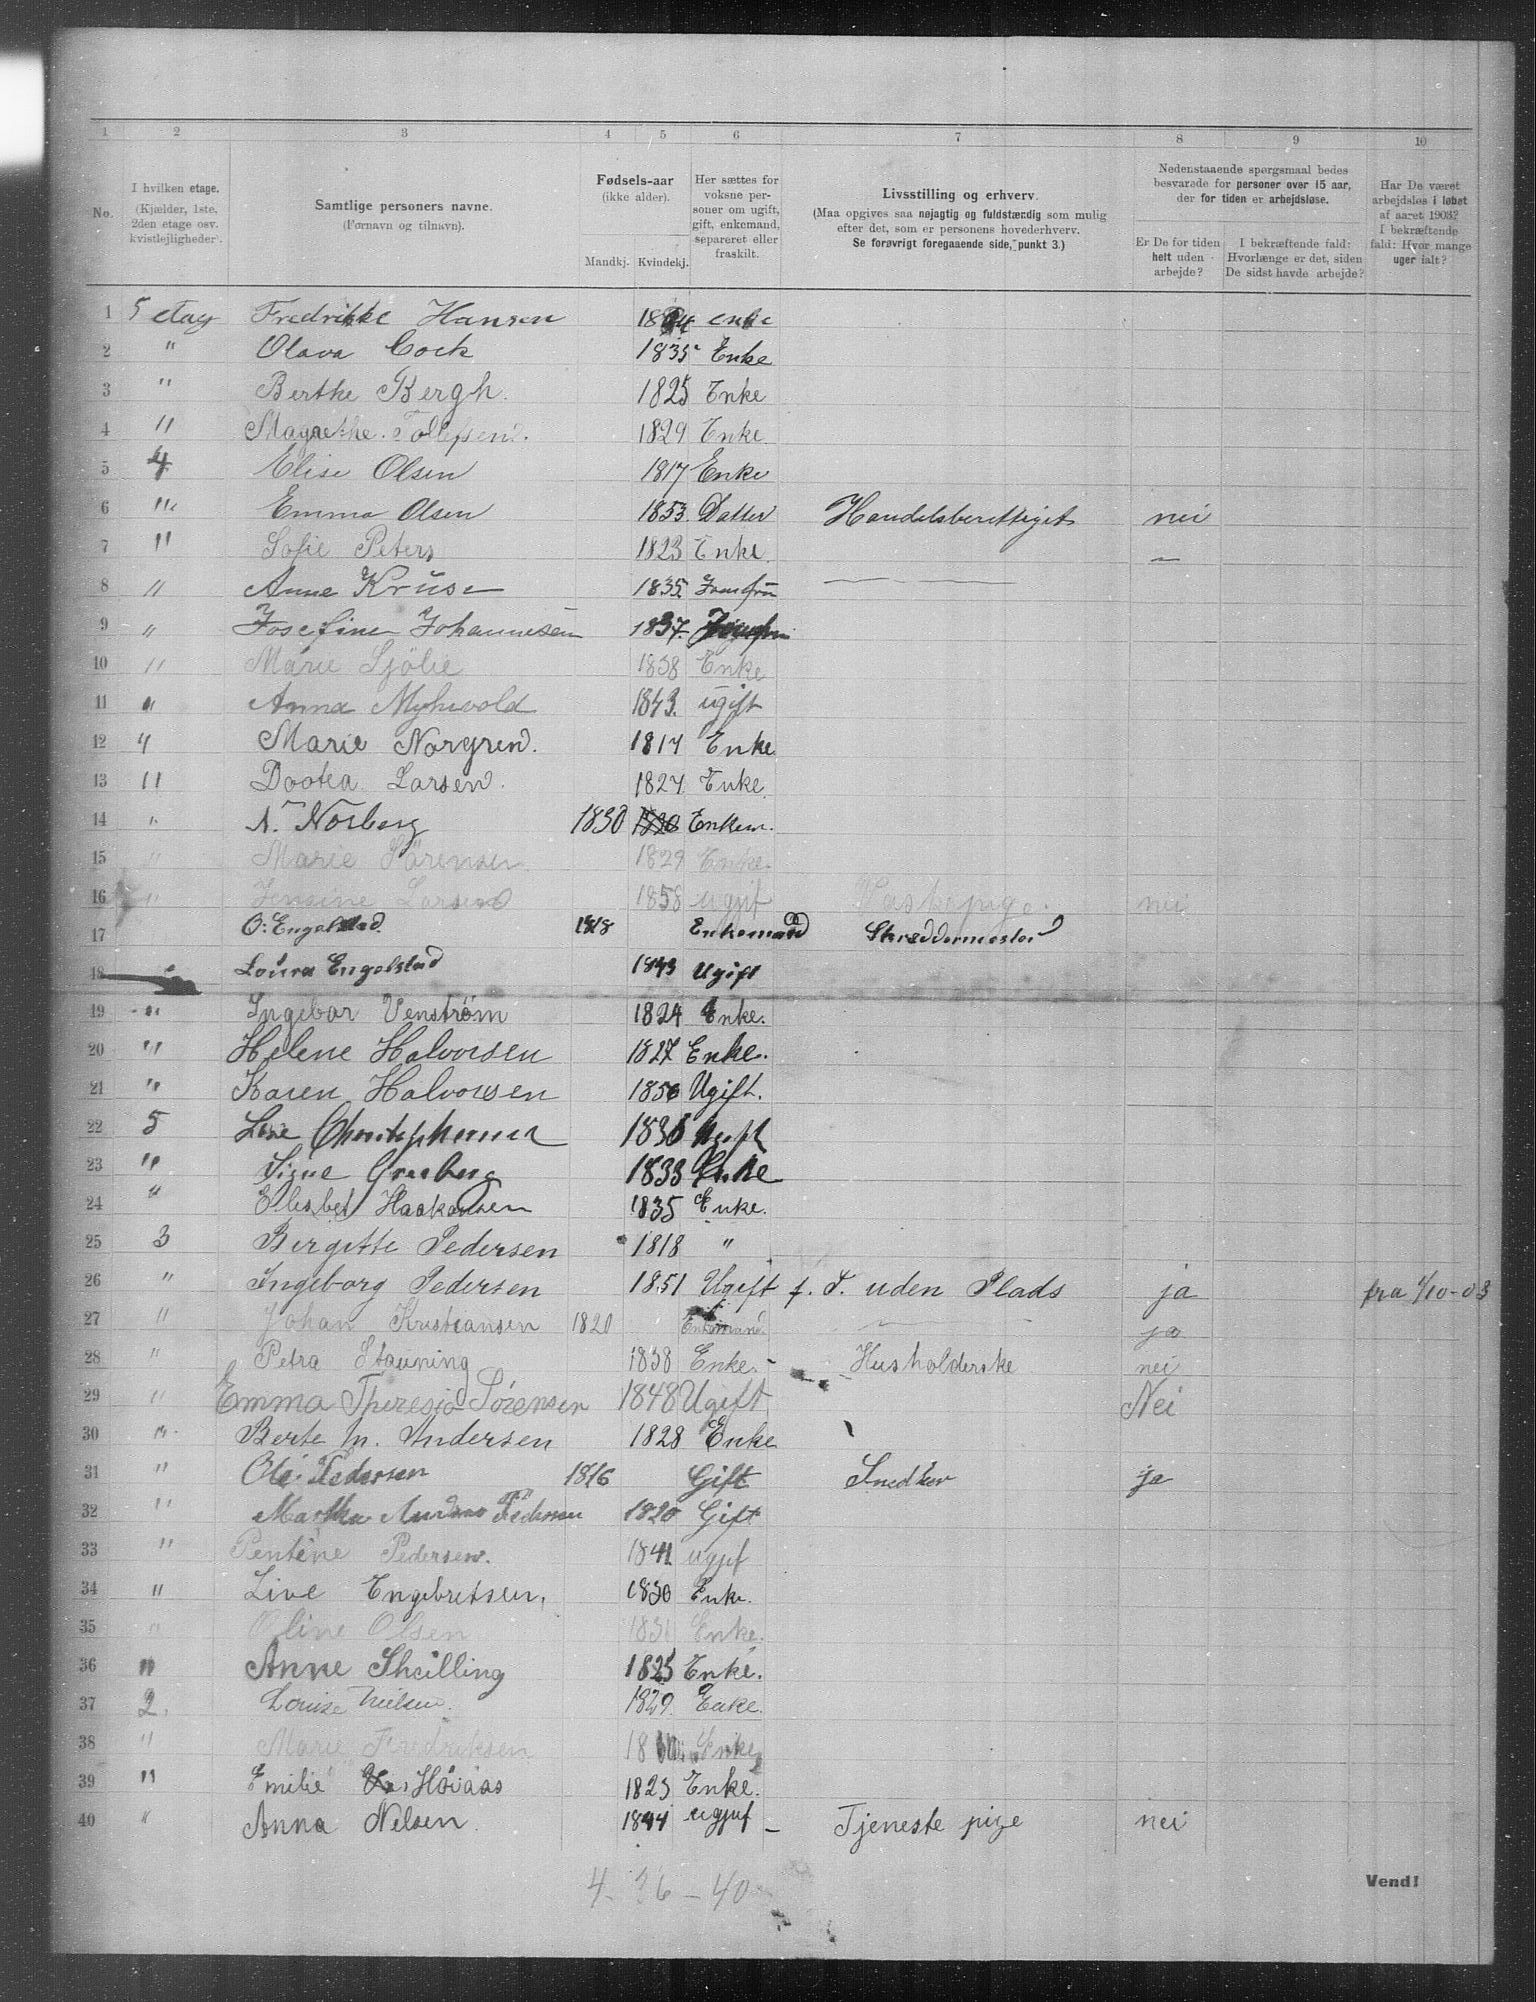 1 2 3 4 5 6 7 8 9 10
No.
I hvilken etage.
(Kjælder, 1ste,
2den etage osv.
kvistlejligheder).
Samtlige personers navne.
(Fornavn og tilnavn).
Fødsels-aar
(ikke alder).
Mandkj. Kvindekj.
Her sættes for
voksne per-
soner om ugift,
gift, enkemand,
separeret eller
fraskilt.
Livsstilling og erhverv.
(Maa opgives saa nøjagtig og fuldstændig som mulig
efter det, som er personens hovederhverv.
Se forøvrigt foregaaende side, punkt 3.)
Nedenstaaende spørgsmaal bedes
besvarede for personer over 15 aar,
der for tiden er arbejdsløse.
Er De for tiden
helt uden
arbejde?
I bekræftende fald:
Hvorlænge er det, siden
De sidst havde arbejde?
Har De været
arbejdsløs i løbet
af aaret 1903?
I bekræftende
fald: Hvor mange
uger ialt?
1 5 etag Fredrikke Hansen enke
2 " Olava Cock 1835 Enke
3 " Berthe Bergh. 1825 Enke
4 " Magrethe Tollefsen. 1829 Enke
5 4 Elise Olsen 1817 Enke
6 " Emma Olsen 1853 Datter Handelsberettiget nei
7 " Sofie Peters 1823 Enke. —
8 " Anne Kruse 1835 Jomfru —
9 " Josefine Johannesen 1837.
10 " Marie Sjölie 1838 Enke
11 " Anna Myhrvold 1843. ugift
12 " Marie Norgren. 1817 Enke
13 " Dootea Larsen. 1827. Enke.
14 " N. Norberg 1830 Enkem.
15 " Marie Sörensen 1829 Enke.
16 " Jensine Larsen 1858 ugift nei
17 O. Engelstad 1818 Enkemand Skreddermester
18 " Loura Engelstad 1843 Ugift
19 " Ingebor Venström 1824 Enke.
20 " Helene Halvorsen 1827 Enke.
21 " Karen Halvorsen 1856 Ugift.
22 5 Christophersen Ugift
23 " Signe 1833 Enke
24 " Elisbet Haakonsen 1835 Enke.
25 3 Birgitte Pedersen 1818 "
26 " Ingeborg Pedersen 1851 Ugift f. T. uden Plads ja fra 1/10-03
27 " Johan Kristiansen 1820 Enkemand. — ja
28 " Petra Stauning 1838 Enke. Husholderske nei
29 " Emma Theresia Sørensen 1848 Ugift Nei
30 " Berte M. Andersen 1828 Enke
31 " Ole Pedersen 1816 Gift Snedker ja
32 " Martha Pedersen 1820 Gift
33 " Pentene Pedersen. 1841 ugift
34 " Live Engebretsen. 1830 Enke.
35 " Oline Olsen 1831 Enke.
36 " Anne Sheilling 1825 Enke.
37 2. Louise Nielsen. 1829. Enke.
38 " Marie Fredriksen Enke
39 " Emilie Hövaas 1823 Enke.
40 " Anna Nelsen. 1844 ugift — Tjeneste pige nei
4. 36 – 40
Vend!